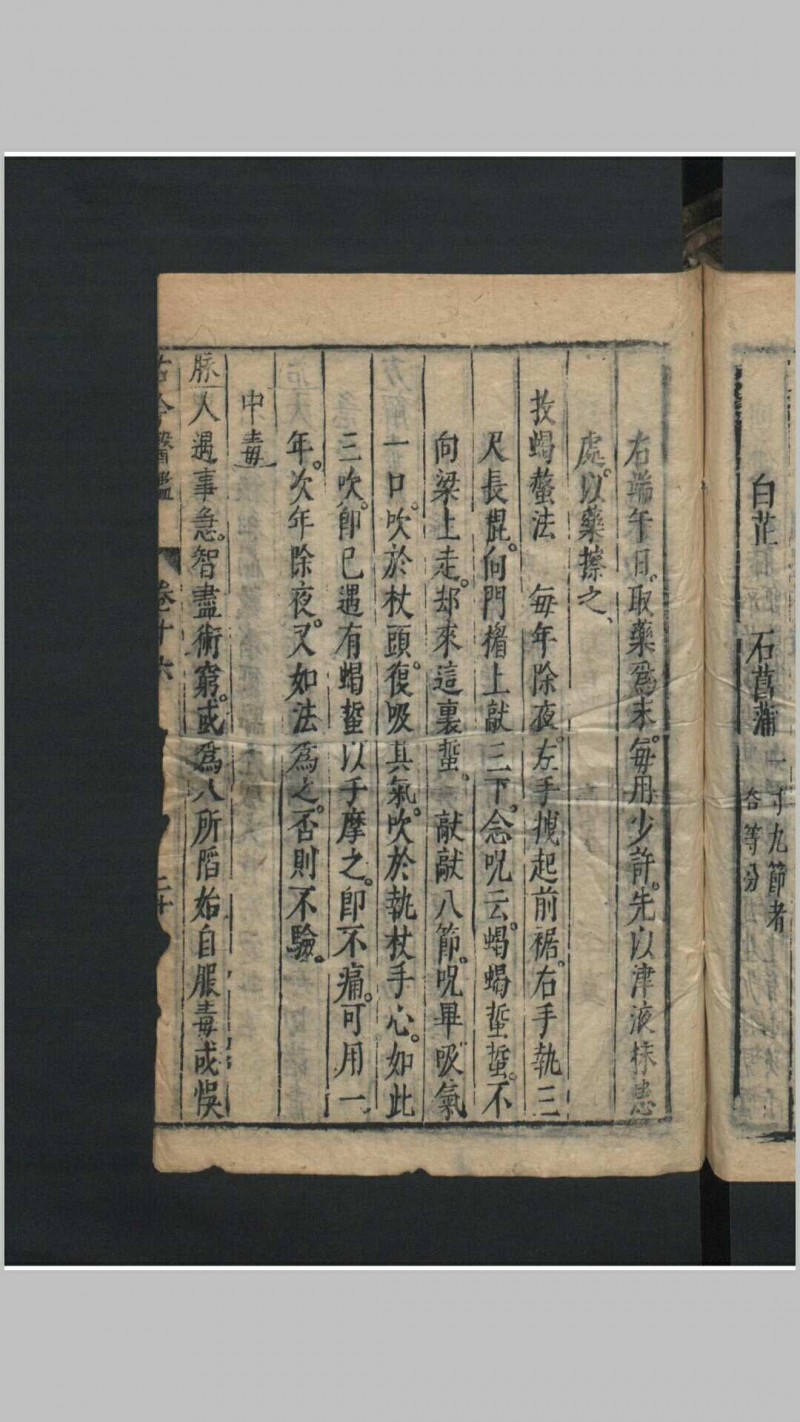 白芷　石菖蒲一寸九節者
各等分
右端午日取藥爲末每用少許先以津液抹患
處以藥擦之
救蝎螫法　每年除夜左手拽起前裾右手執三
尺長棍向門楣上敲三下念呪云蝎蝎蜇蜇不
向梁上走却來這裏蜇　敲敲八節呪畢吸氣
一口吹於杖頭復吸其氣吹於執杖手心如此
三吹即已遇有蝎蜇以手摩之即不痛可用一
年次年除夜又如法爲之否則不驗
中毒
脉人遇事急智盡術窮或爲人所陷始自服毒或悞
古今醫鑑　卷十六